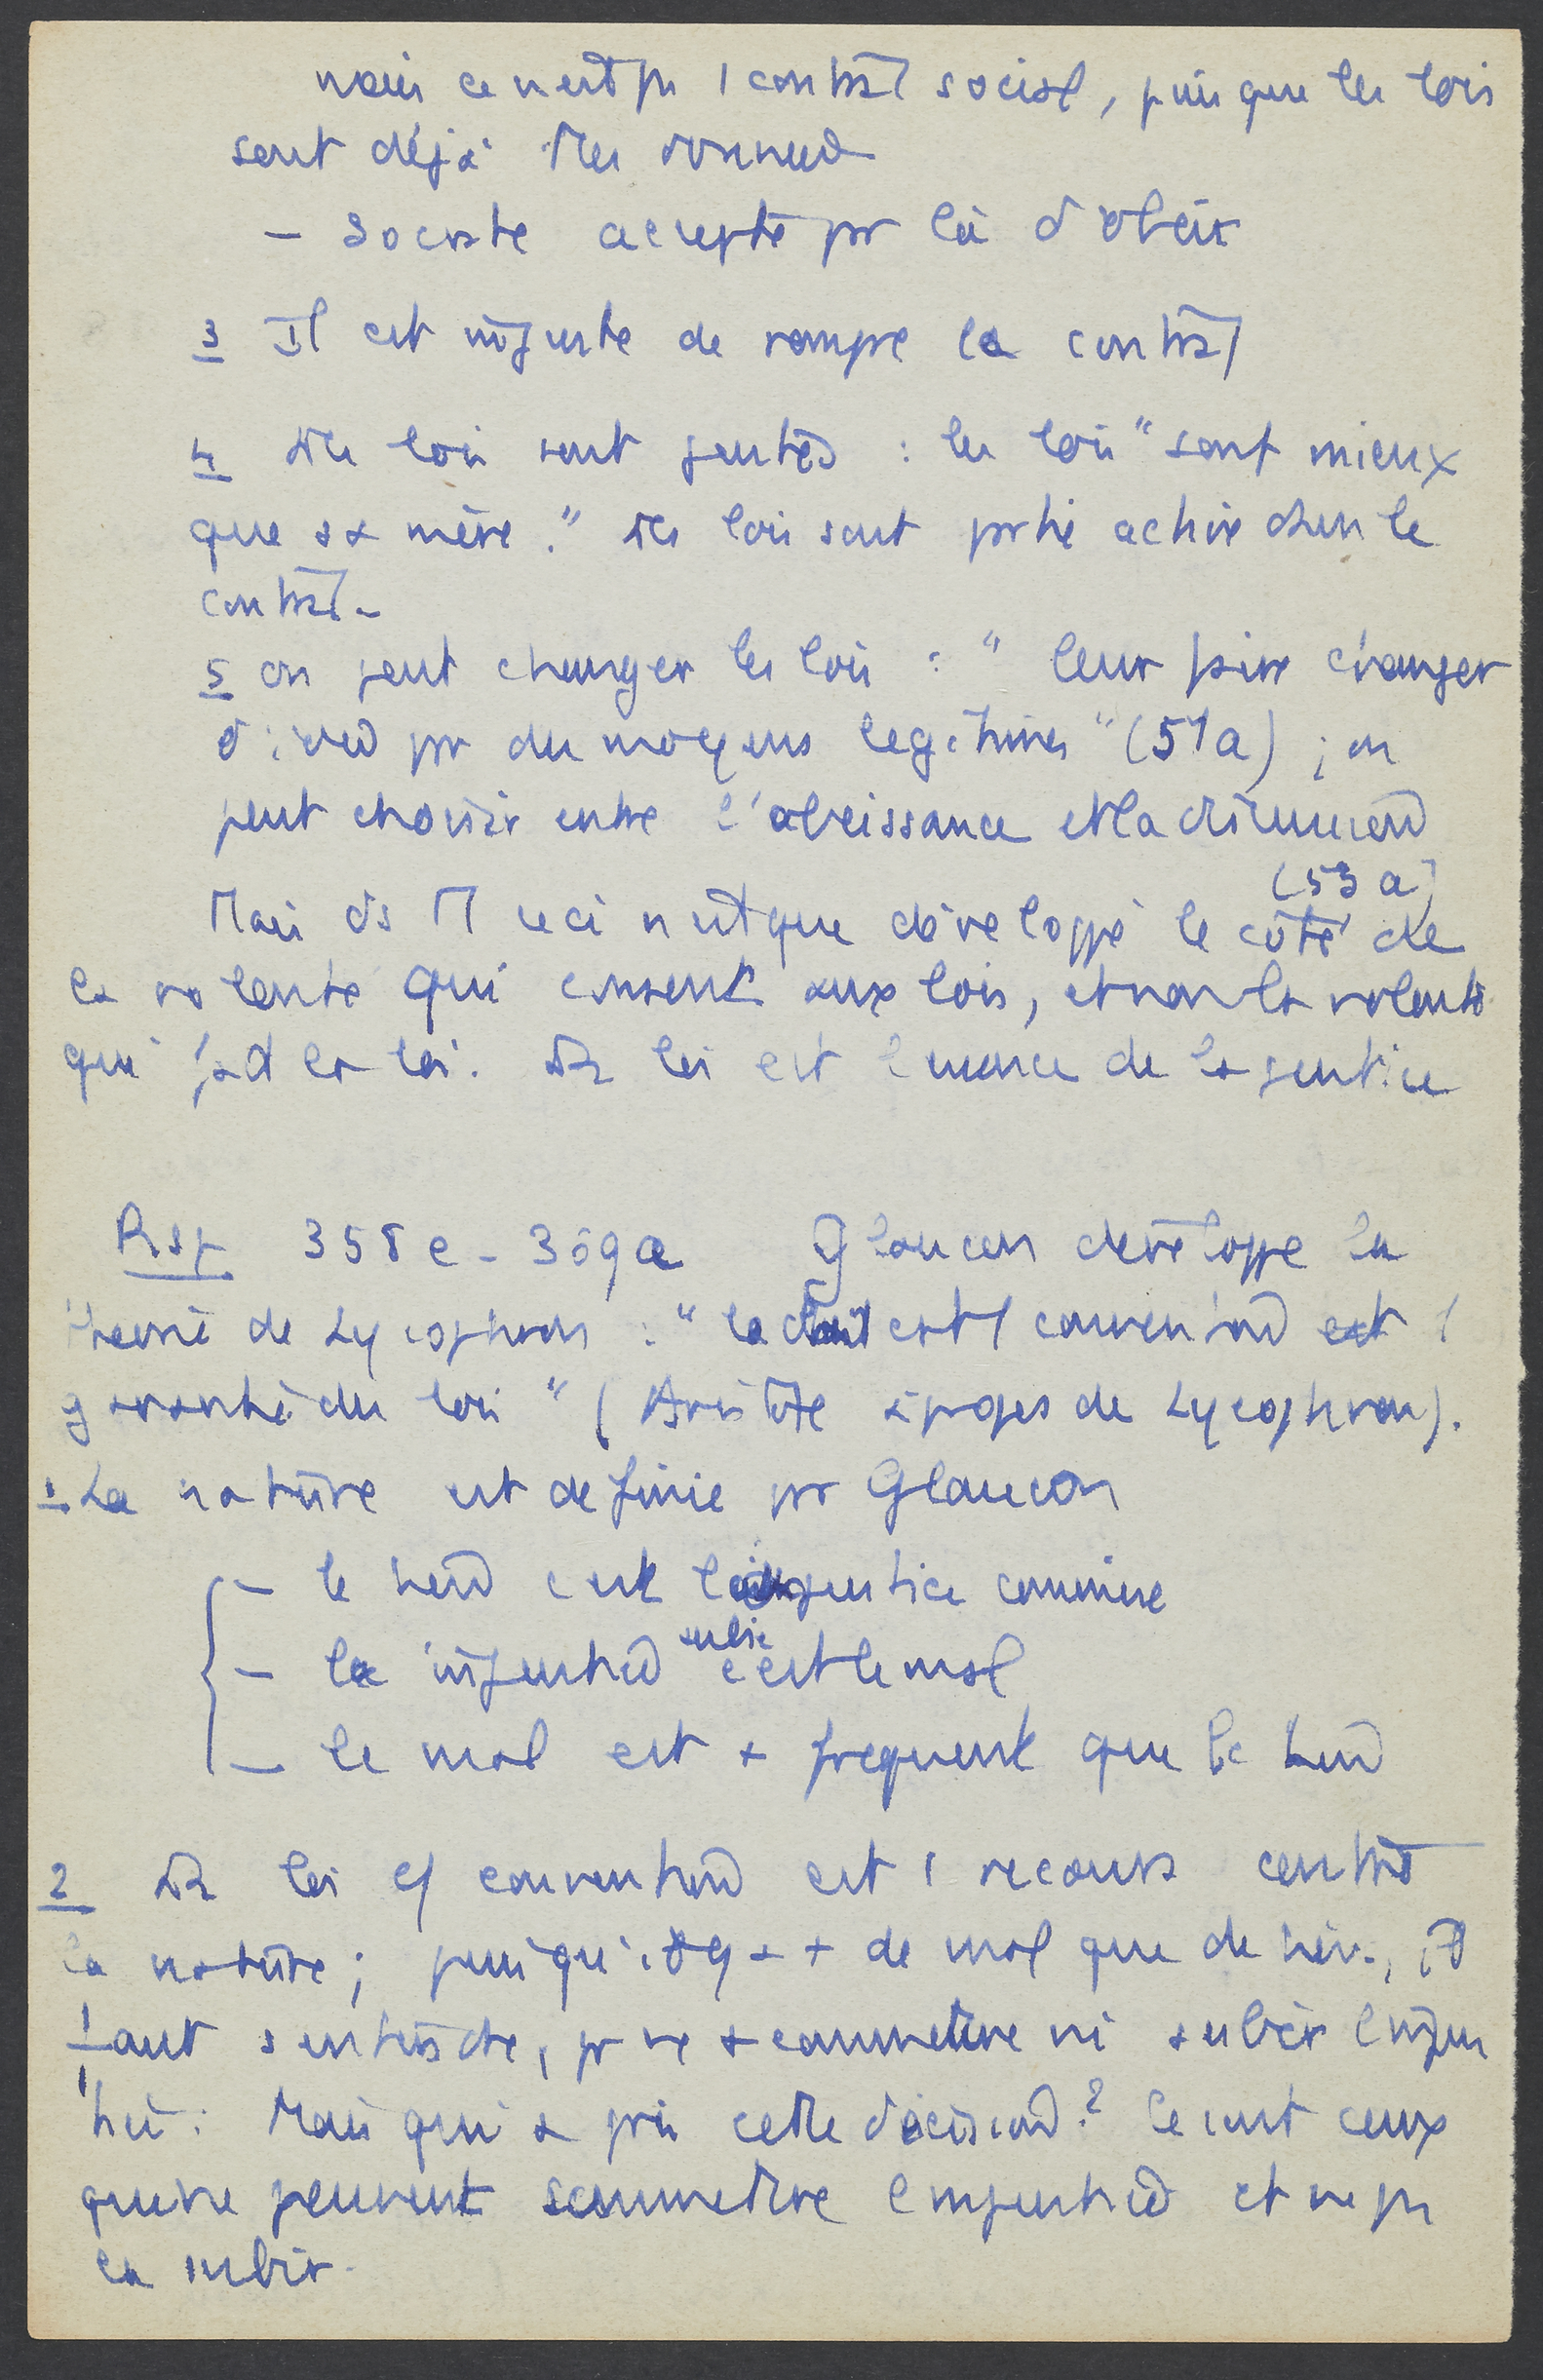 mais ce n'est ps 1 contrat social, puisque les lois
sont déjà données
- Socrate accepte pr là d'obéir
3 Il est injuste de rompre le contrat
4 Les lois sont justes : les lois "sont mieux
que sa mère." Les lois sont partie active dans le
contrat -
5 on peut changer les lois : " leur faire changer
d'avis pr des moyens légitimes " (51a) ; on
peut choisir entre l'obéissance et la discussion
(53 a)
Mais ds ceci n'est que développé le côté de
la volonté qui consent aux lois, et non la volonté
qui fait la loi. La loi est émanée de la justice
Rep 358e - 369a Glaucon développe la
théorie de Lycophron : " le droit est 1 convention est 1
garantie des lois " (Aristote à propos de Lycophron).
1 La nature est définie pr Glaucon
- le bien c'est l'injustice commise
- la injustice subie c'est le mal
- le mal est + fréquent que le bien
2 La loi cf convention est 1 recours contre
la nature ; puisqu'il y a + de mal que de bien, il
faut s'entendre, pr ne + commettre ni subir l'injus
tice. Mais qui a pris cette décision ? Ce sont ceux
qui ne peuvent commettre l'injustice et ne ps
la subir.